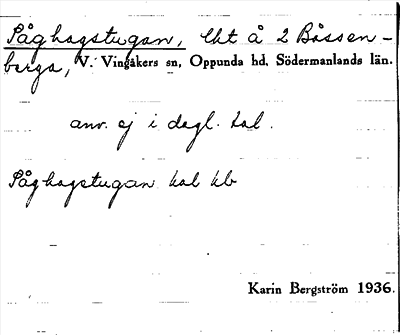 Påghagstugan, lht å 2 Båssen-
berga, V. Vingåkers sn, Oppunda hd, Södermanlands län.
anv. ej i dagl. tal.
Påghagstugan kal kb
Karin Bergström 1936.